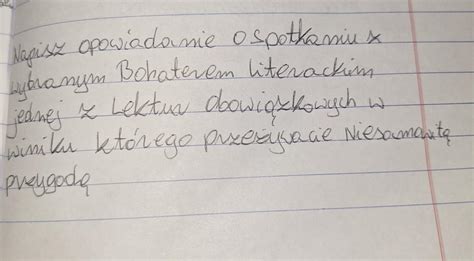 Napisz opowiadanie o spotkaniu z
wybranym Bohaterem literackim
jednej z Lektur obowiązkowych w
winiku którego przeżywacie Niesamowitą
przygodę